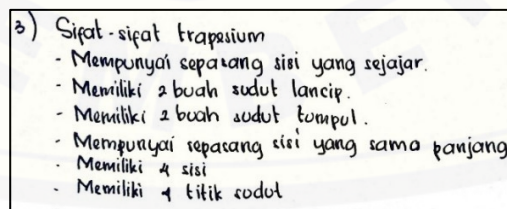 3) Sifat-sifat trapesium
- Mempunyai sepasang sisi yang sejajar.
- Memiliki 2 buah sudut lancip.
- Memiliki 2 buah sudut tumpul.
- Mempunyai sepasang sisi yang sama panjang
- Memiliki 4 sisi
- Memiliki 4 titik sudut